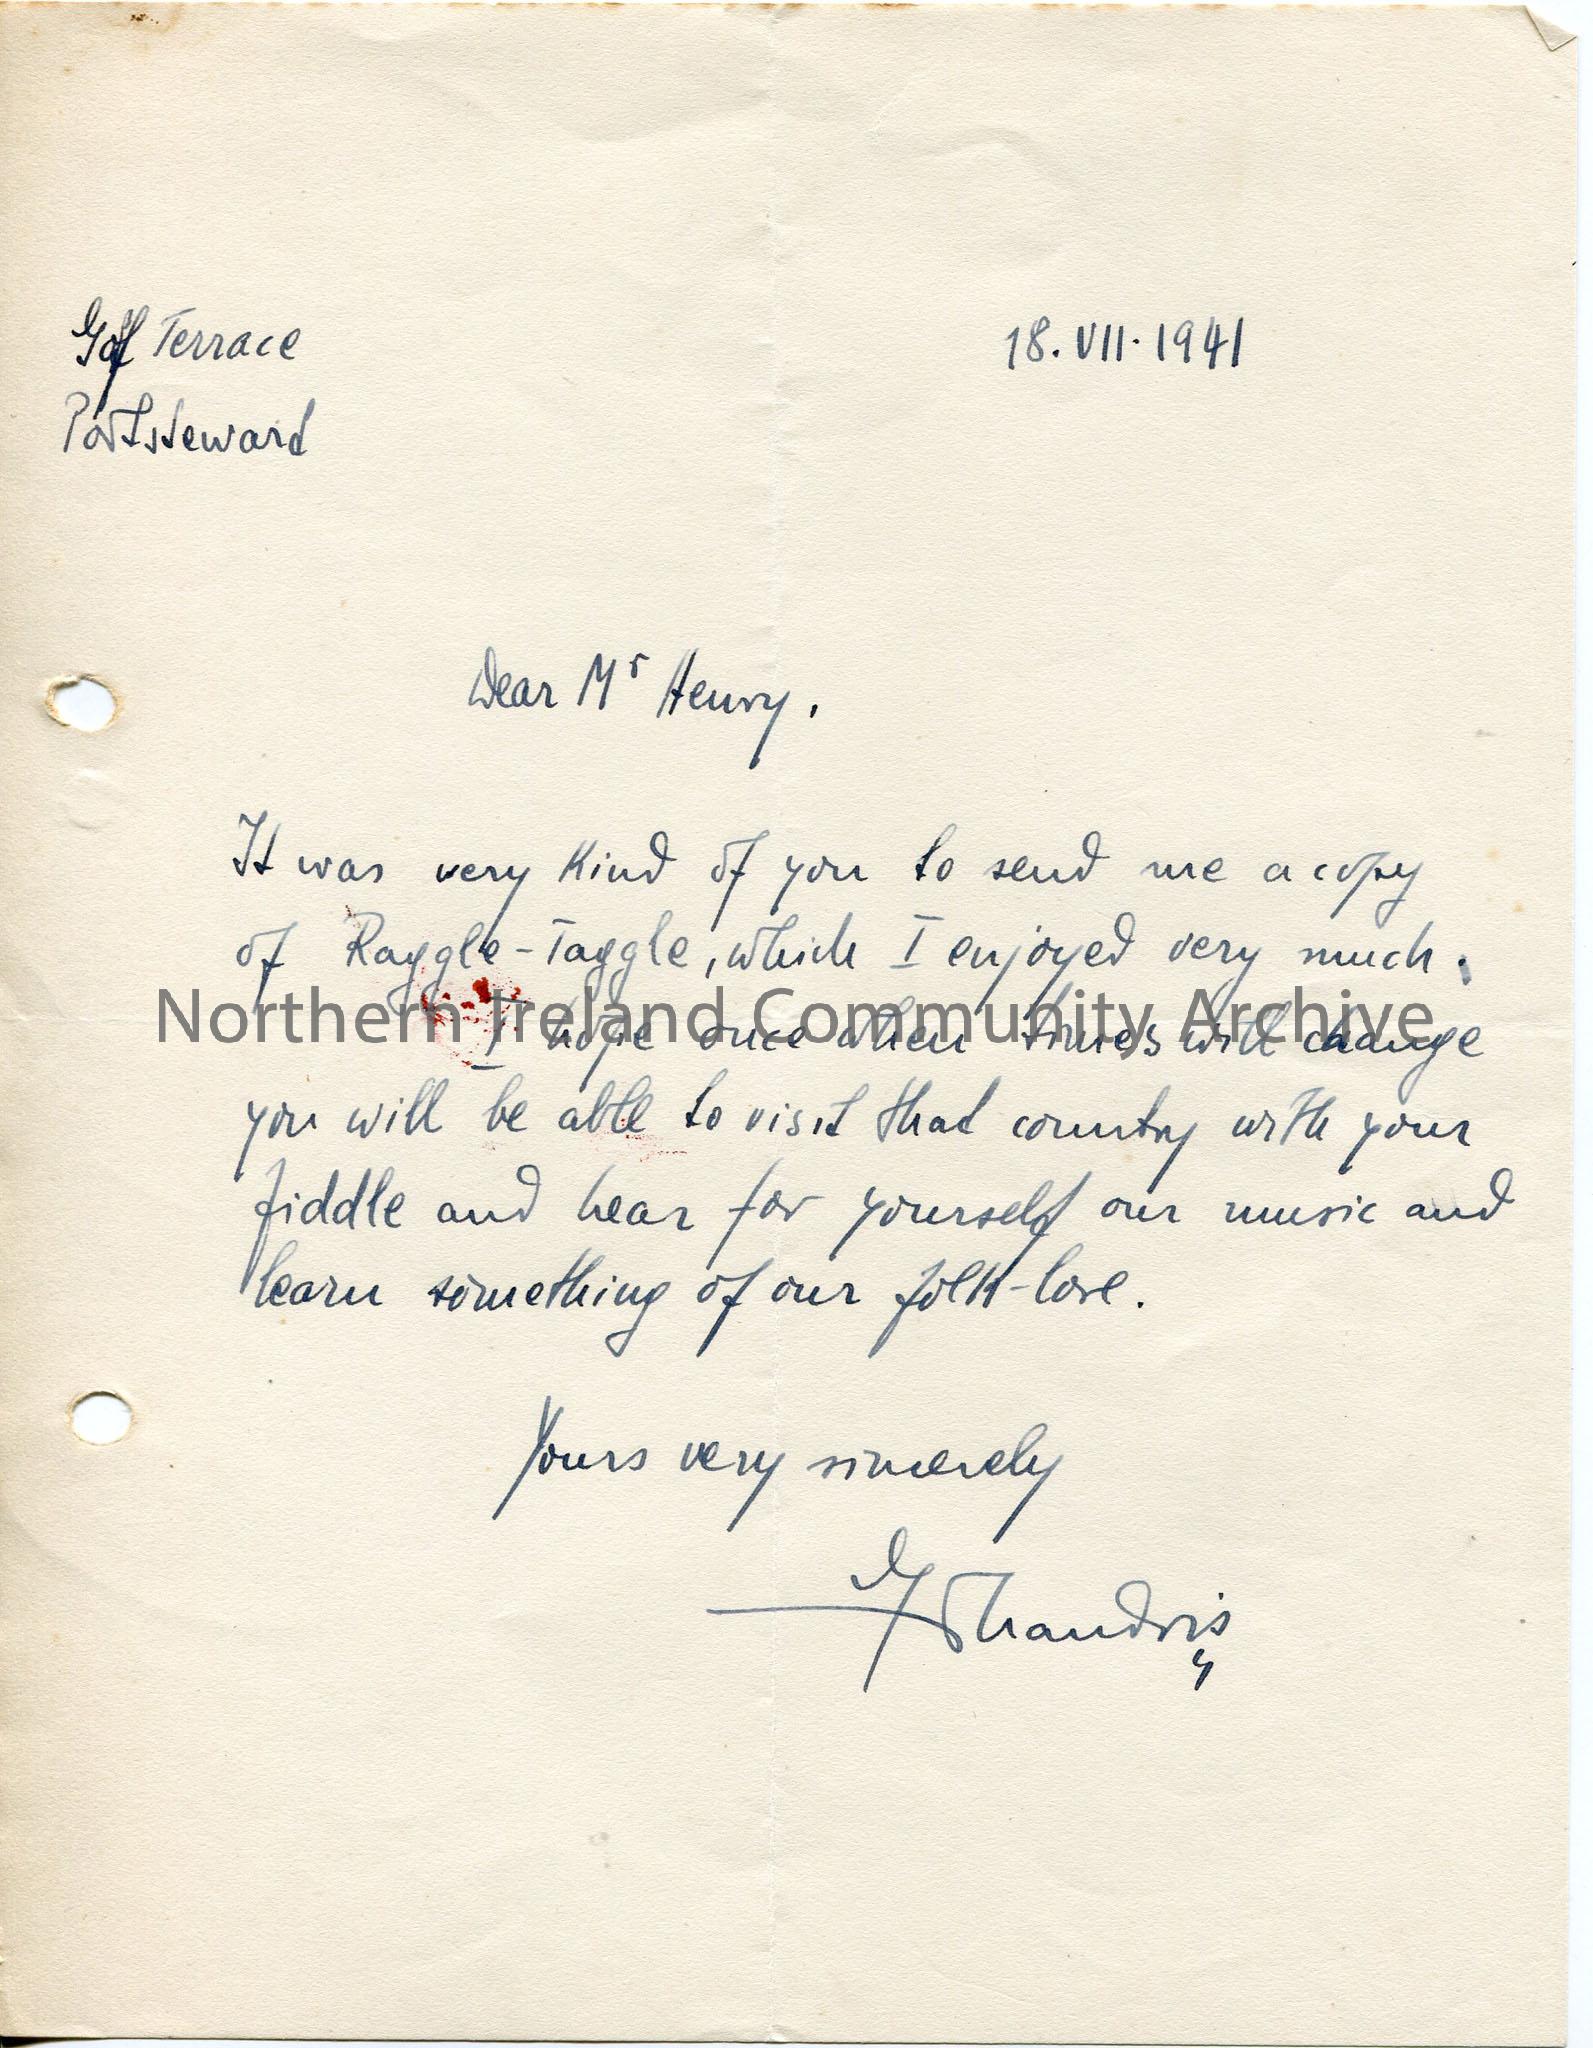 Golf Terrace
Portsteward
18. VII. 1941
Dear Mr Henry,
It was very kind of you to send me a copy
of Raggle-Taggle, which I enjoyed very much.
Northern Ireland Community Archive
I hope once when times will change
you will be able to visit that country with your
fiddle and hear for yourself our music and
learn something of our folk-lore.
Yours very sincerely